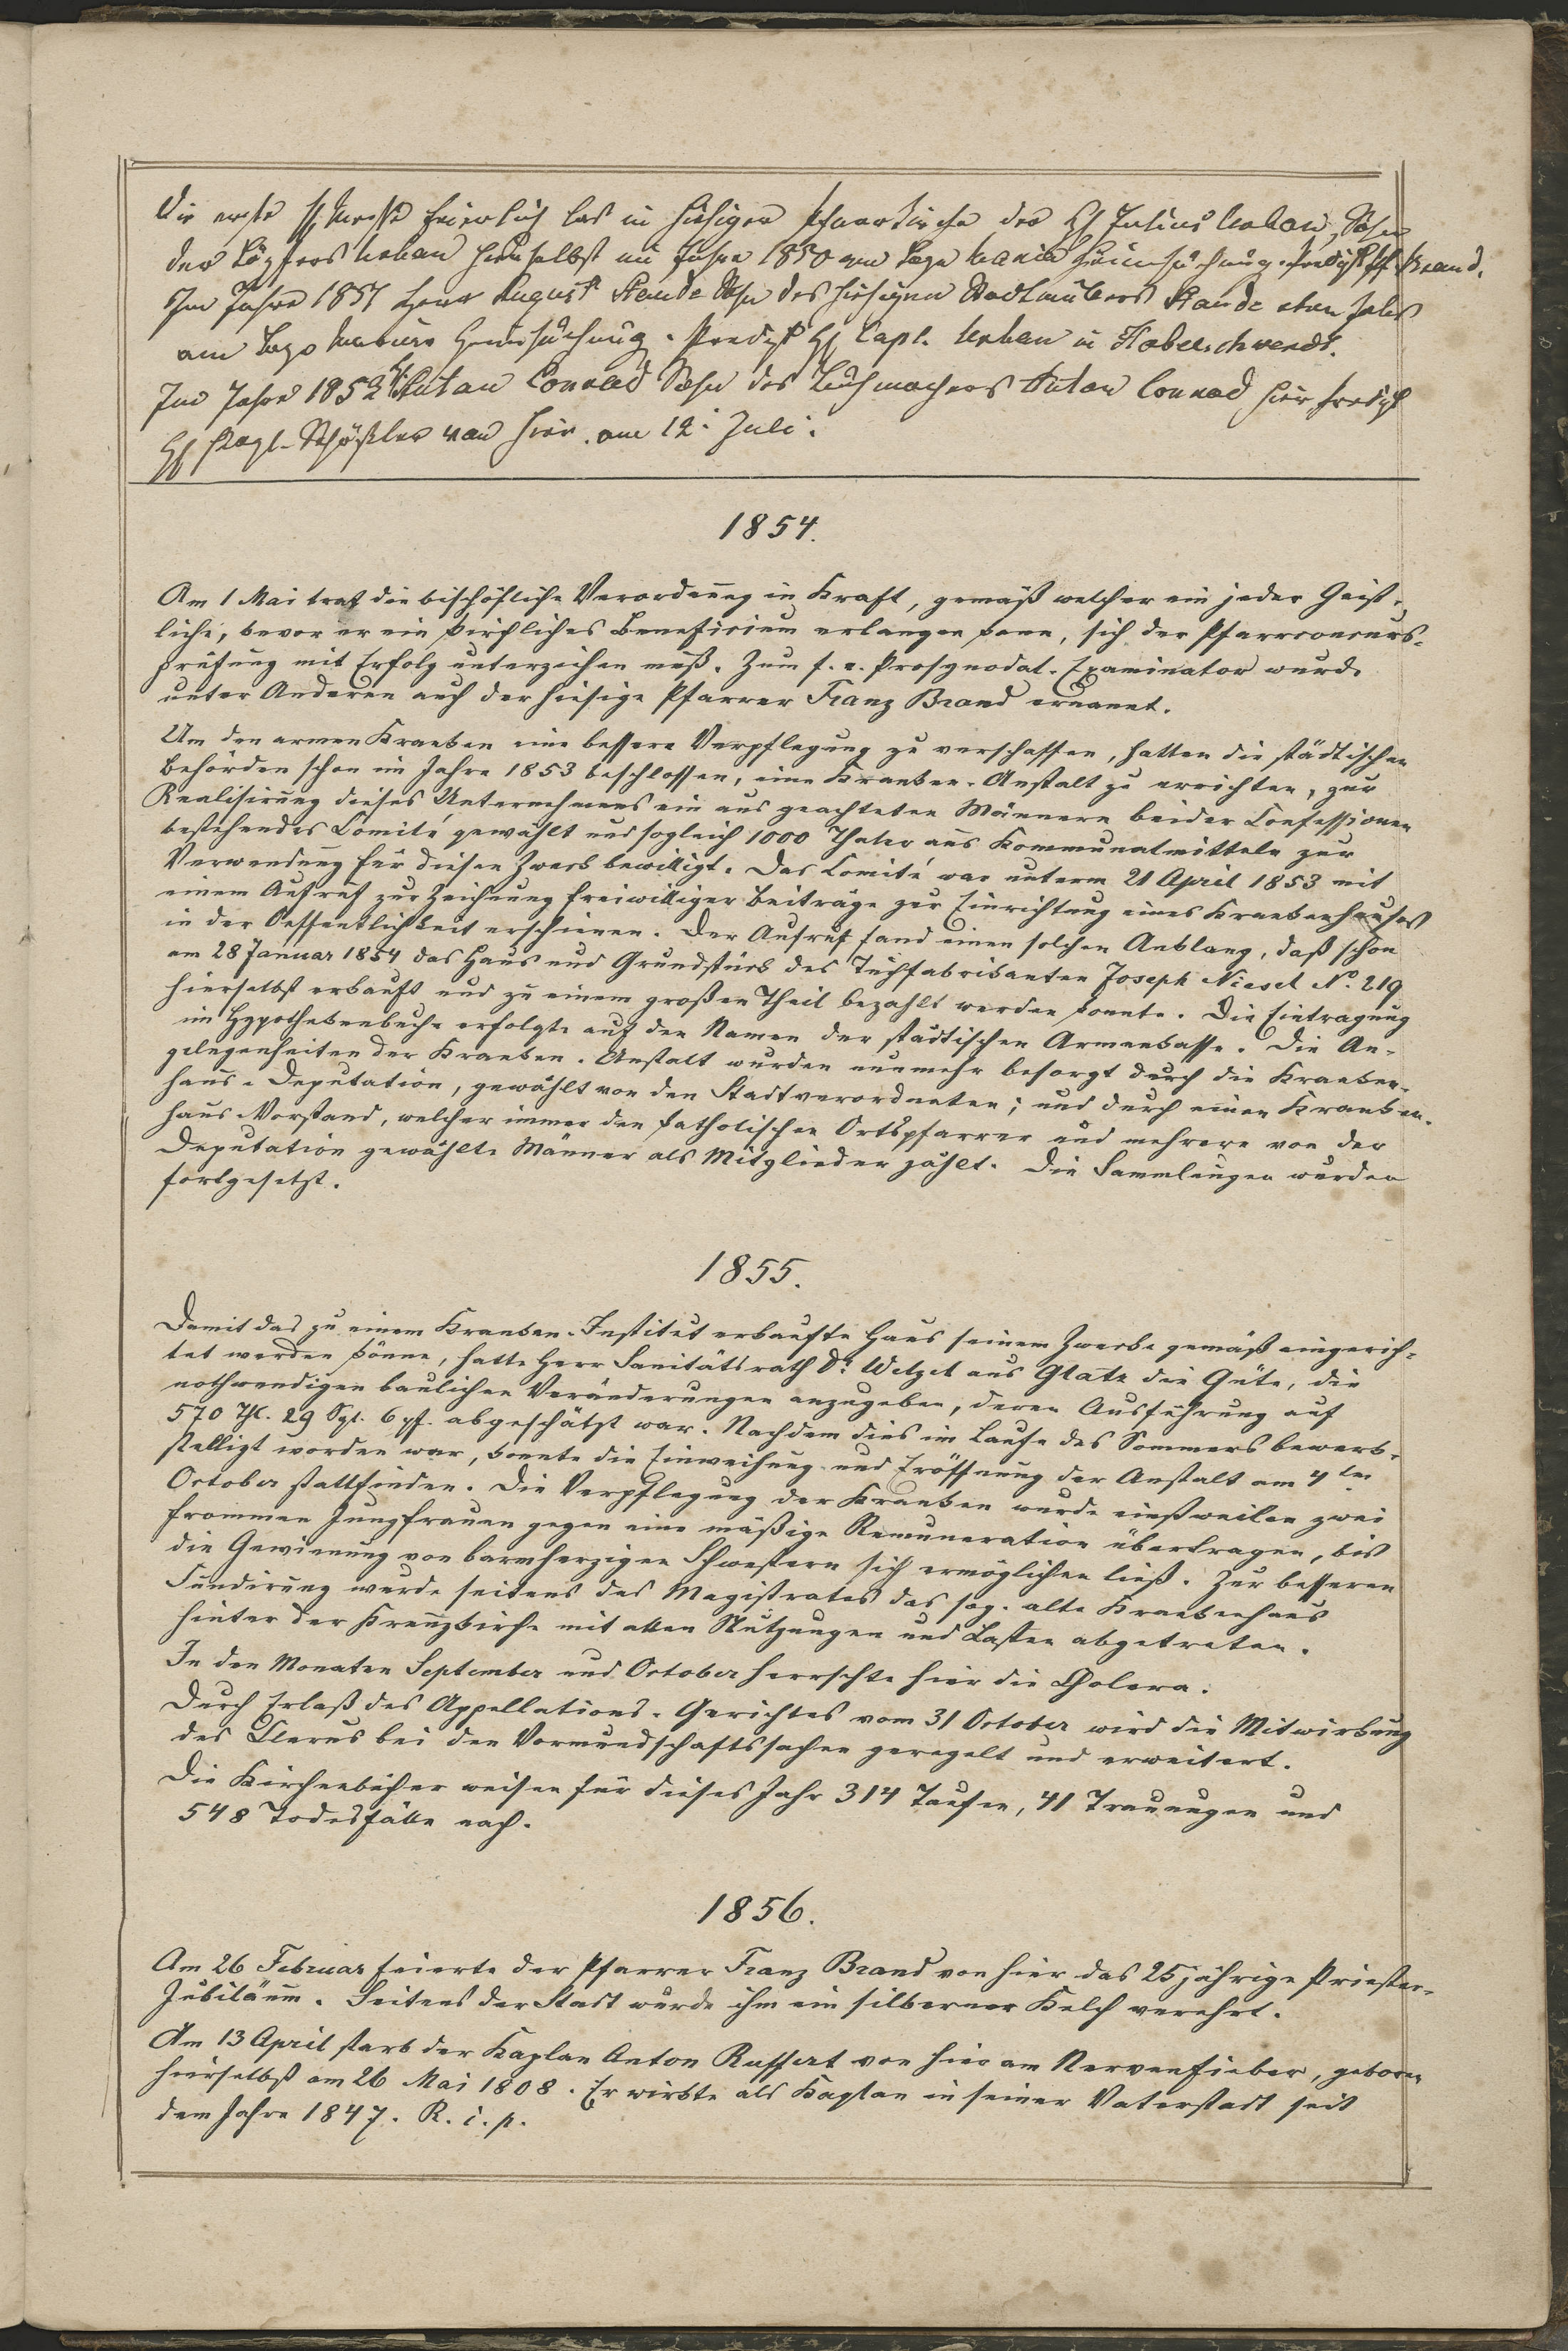 Die erste hl. Messe feierlich las in hiesiger Pfarrkirche der H Julius Urban, Sohn
des Töpfers Urban hierselbst im Jahre 1850 am Tage Mariä Heimsuchung. Predigt Pf. Brand.
Im Jahre 1851 Herr August Stande Sohn des hiesigen Stande eben falls
am Tage Mariä Heimsuchung. Predigt H Capl. Urban in Habelschwerdt.
Im Jahre 1852 H Anton Conrad Sohn des Tuchmachers Anton Conrad hier Predigt
H Kapl. von hier. am 12. Juli.
1854.
Am 1 Mai trat die bischöfliche Verordnung in Kraft, gemäß welcher ein jeder Geist-
liche, bevor er ein kirchliches Beneficium erlangen kann, sich der Pfarrconcurs-
prüfung mit Erfolg unterziehen muß. Zum f. e. Prosynodal-Examinator wurde
unter Anderen auch der hiesige Pfarrer Franz Brand ernannt.
Um den armen Kranken eine bessere Verpflegung zu verschaffen, hatten die städtischen
Behörden schon im Jahre 1853 beschlossen, eine Kranken-Anstalt zu errichten, zur
Realisirung dieses Unternehmens ein aus geachteten Männern beider Confessionen
bestehendes Comité gewählt und sogleich 1000 Thaler aus Kommunalmitteln zur
Verwendung für diesen Zweck bewilligt. Das Comité war unterm 21 April 1853 mit
einem Aufruf zur Zeichnung freiwilliger Beiträge zur Einrichtung eines Krankenhauses
in der Oeffentlichkeit erschienen. Der Aufruf fand einen solchen Anklang, daß schon
am 28 Januar 1854 das Haus und Grundstück des Tuchfabrikanten Joseph Niesel No. 219
hierselbst erkauft und zu einem großen Theil bezahlt werden konnte. Die Eintragung
im Hypothekenbuche erfolgte auf den Namen der städtischen Armenkasse. Die An-
gelegenheiten der Kranken-Anstalt wurden nunmehr besorgt durch die Kranken-
haus-Deputation, gewählt von den Stadtverordneten; und durch einen Kranken-
haus-Vorstand, welcher immer den katholischen Ortspfarrer und mehrere von der
Deputation gewählte Männer als Mitglieder zählt. Die Sammlungen wurden
fortgesetzt.
1855.
Damit das zu einem Kranken-Institut erkaufte Haus seinem Zwecke gemäß eingerich-
tet werden könne, hatte Herr Sanitätsrath Dr. Welzel aus Glatz die Güte, die
nothwendigen baulichen Veränderungen anzugeben, deren Ausführung auf
570 Thl. 29 Sgl. 6 pf. abgeschätzt war. Nachdem dies im Laufe des Sommers bewerk-
stelligt worden war, konnte die Einweihung und Eröffnung der Anstalt am 4ten
October stattfinden. Die Verpflegung der Kranken wurde einstweilen zwei
frommen Jungfrauen gegen eine mäßige Remuneration übertragen, bis
die Gewinnung von barmherzigen Schwestern sich ermöglichen ließ. Zur besseren
Fundirung wurde seitens des Magistrates das sog. alte Krankenhaus
hinter der Kreuzkirche mit allen Nutzungen und Lasten abgetreten.
In den Monaten September und October herrschte hier die Cholera.
Durch Erlaß des Appellations-Gerichtes vom 31 October wird die Mitwirkung
des Clerus bei den Vormundschaftssachen geregelt und erweitert.
Die Kirchenbücher weisen für dieses Jahr 314 Taufen, 41 Trauungen und
548 Todesfälle nach.
1856.
Am 26 Februar feierte der Pfarrer Franz Brand von hier das 25jährige Priester-
Jubiläum. Seitens der Stadt wurde ihm ein silberner Kelch verehrt.
Am 13 April starb der Kaplan Anton Ruffert von hier am Nervenfieber, geboren
hierselbst am 26 Mai 1808. Er wirkte als Kaplan in seiner Vaterstadt seit
dem Jahre 1847. R. i. p.